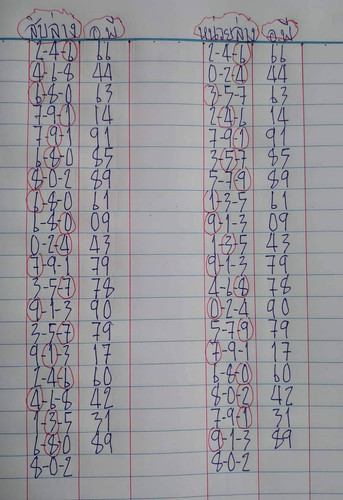 สิบล่าง อ.พี หน่วยล่าง อ.พี
2-4-6 66 2-4-6 66
4-6-8 44 0-2-4 44
6-8-0 63 3-5-7 63
7-9-1 14 2-4-6 14
7-9-1 91 7-9-1 91
6-8-0 85 3-5-7 85
8-0-2 89 5-7-9 89
6-8-0 61 1-3-5 61
6-8-0 09 9-1-3 09
0-2-4 43 1-3-5 43
7-9-1 79 9-1-3 79
3-5-7 78 4-6-8 78
9-1-3 90 0-2-4 90
3-5-7 79 5-7-9 79
9-1-3 17 7-9-1 17
2-4-6 60 6-8-0 60
4-6-8 42 8-0-2 42
1-3-5 31 7-9-1 31
6-8-0 89 9-1-3 89
8-0-2 8-0-2